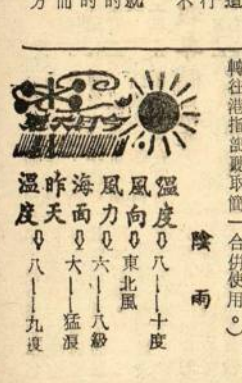 轉往港指部聽取簡
一合併使用。）
今日天氣
陰雨
溫度⇨八——十度
風向⇨東北風
風力⇨六——八級
海面⇨大——猛浪
昨天溫度⇨八——九度